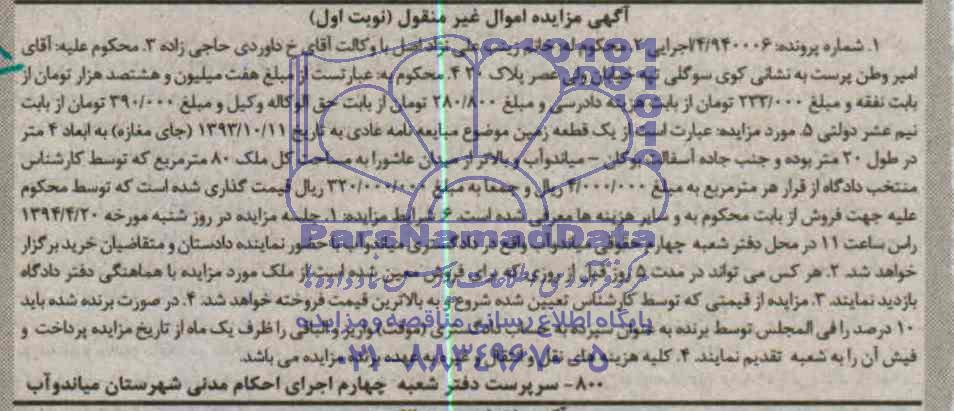 آگهی مزایده اموال غیر منقول (نوبت اول)
۱. شماره پرونده: ۴/۹۴۰۰۰۶اجرایی ۲. محکوم له: خانم زینب علی نژاد اصل با وکالت آقای خ داوردی حاجی زاده ۳. محکوم علیه: آقای
امیر وطن پرست به نشانی کوی سوگلی تپه خیابان ولی عصر پلاک ۲۰ ۴. محکوم به: عبارتست از مبلغ هفت میلیون و هشتصد هزار تومان از
بابت نفقه و مبلغ ۲۳۳/۰۰۰ تومان از بابت هزینه دادرسی و مبلغ ۲۸۰/۸۰۰ تومان از بابت حق الوکاله وکیل و مبلغ ۳۹۰/۰۰۰ تومان از بابت
نیم عشر دولتی ۵. مورد مزایده: عبارت است از یک قطعه زمین موضوع مبایعه نامه عادی به تاریخ ۱۳۹۳/۱۰/۱۱ (جای مغازه) به ابعاد ۴ متر
در طول ۲۰ متر بوده و جنب جاده آسفالته بوکان – میاندوآب و بالاتر از میدان عاشورا به مساحت کل ملک ۸۰ مترمربع که توسط کارشناس
منتخب دادگاه از قرار هر مترمربع به مبلغ ۴/۰۰۰/۰۰۰ ریال و جمعا به مبلغ ۳۲۰/۰۰۰/۰۰۰ ریال قیمت گذاری شده است که توسط محکوم
علیه جهت فروش از بابت محکوم به و سایر هزینه ها معرفی شده است. ۶. شرایط مزایده: ۱. جلسه مزایده در روز شنبه مورخه ۱۳۹۴/۴/۲۰
راس ساعت ۱۱ در محل دفتر شعبه چهارم حقوقی میاندوآب واقع در دادگستری میاندوآب با حضور نماینده دادستان و متقاضیان خرید برگزار
خواهد شد. ۲. هر کس می تواند در مدت ۵ روز قبل از روزی که برای فروش معین شده است از ملک مورد مزایده با هماهنگی دفتر دادگاه
بازدید نمایند. ۳. مزایده از قیمتی که توسط کارشناس تعیین شده شروع و به بالاترین قیمت فروخته خواهد شد. ۴. در صورت برنده شده باید
۱۰ درصد را فی المجلس توسط برنده به عنوان سپرده به حساب دادگستری واریز و الباقی را ظرف یک ماه از تاریخ مزایده پرداخت و
فیش آن را به شعبه تقدیم نمایند. ۴. کلیه هزینه های نقل و انتقال و غیره به عهده برنده مزایده می باشد.
۸۰۰- سرپرست دفتر شعبه چهارم اجرای احکام مدنی شهرستان میاندوآب
ParsNamadData
پایگاه اطلاع رسانی مناقصه و مزایده
۰۲۱-۸۸۳۴۹۶۷۰-۵